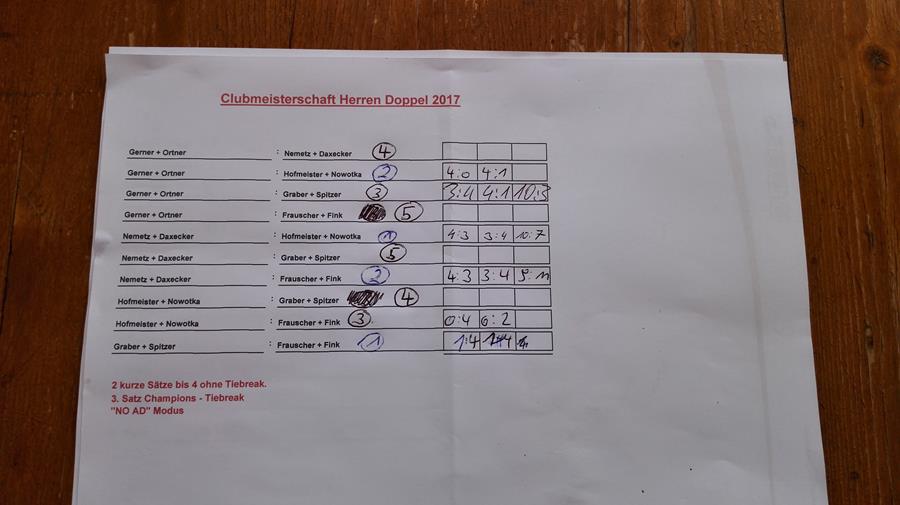 Clubmeisterschaft Herren Doppel 2017
Gerner + Ortner : Nemetz + Daxecker 4
Gerner + Ortner : Hofmeister + Nowotka 2 4:0 4:1
Gerner + Ortner : Graber + Spitzer 3 3:4 4:1 10:3
Gerner + Ortner : Frauscher + Fink 5
Nemetz + Daxecker : Hofmeister + Nowotka 1 4:3 3:4 10:7
Nemetz + Daxecker : Graber + Spitzer 5
Nemetz + Daxecker : Frauscher + Fink 2 4:3 3:4 9:11
Hofmeister + Nowotka : Graber + Spitzer 4
Hofmeister + Nowotka : Frauscher + Fink 3 0:4 0:2
Graber + Spitzer : Frauscher + Fink 1 1:4
2 kurze Sätze bis 4 ohne Tiebreak.
3. Satz Champions - Tiebreak
"NO AD" Modus